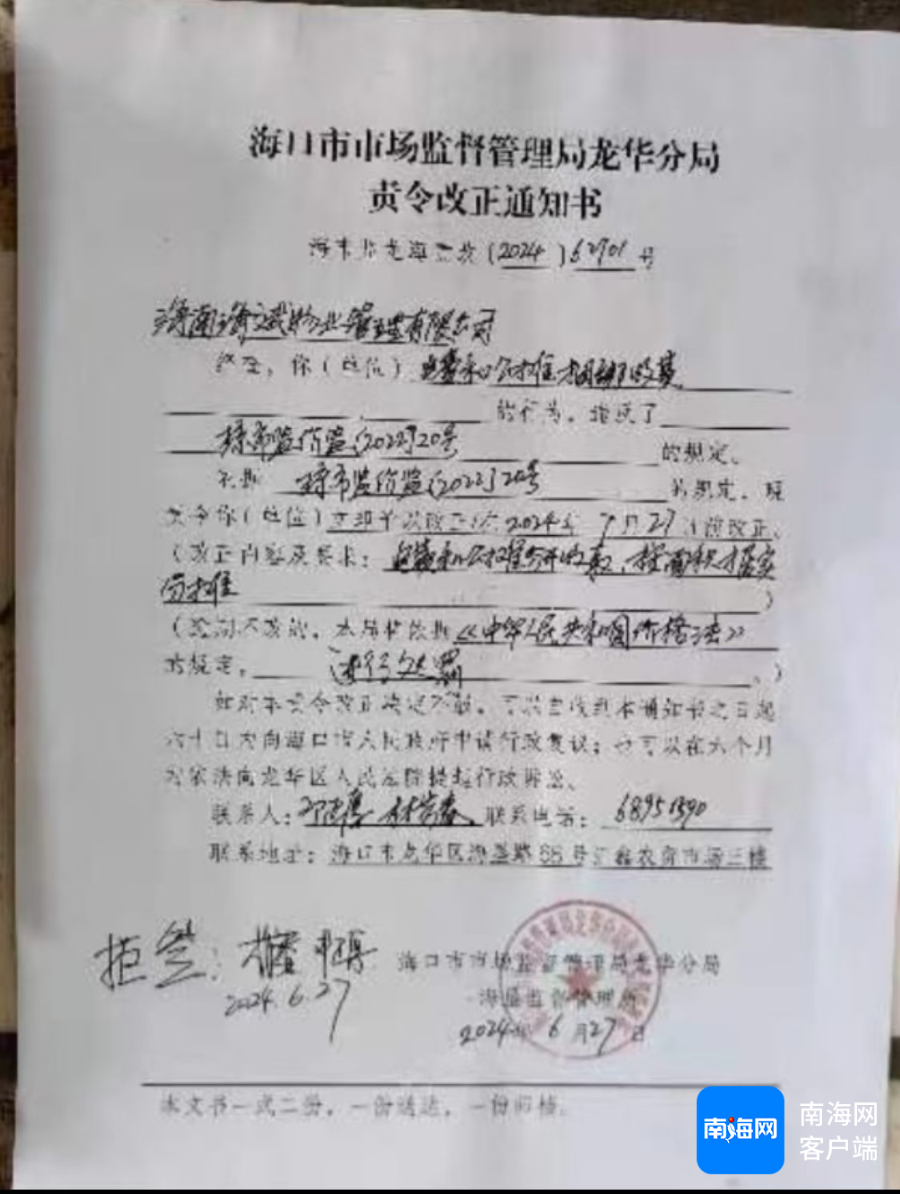 海口市市场监督管理局龙华分局
责令改正通知书
(2024)62701号
海南海斌物业管理有限公司
你(单位)电费和公摊捆绑收费
的行为,违反了
琼市监价监(2022)20号
的规定。
依据 琼市监价监(2022)20号 的规定,现
责令你(单位)立即予以改正/于2024年7月27日前改正。
(改正内容及要求:电费和公摊分开收取,按面积据实
分摊
)
(逾期不改的,本局将依据《中华人民共和国价格法》
的规定, 进行处罚 。)
如对本责令改正决定不服,可以自收到本通知书之日起
六十日内向海口市人民政府申请行政复议;也可以在六个月
内依法向龙华区人民法院提起行政诉讼。
联系人: 联系电话:68951590
联系地址:海口市龙华区海垦路68号 农贸市场三楼
拒签:
2024.6.27
海口市市场监督管理局龙华分局
海垦监督管理所
2024年6月27日
本文书一式二份,一份送达,一份归档。
南海网
南海网
客户端